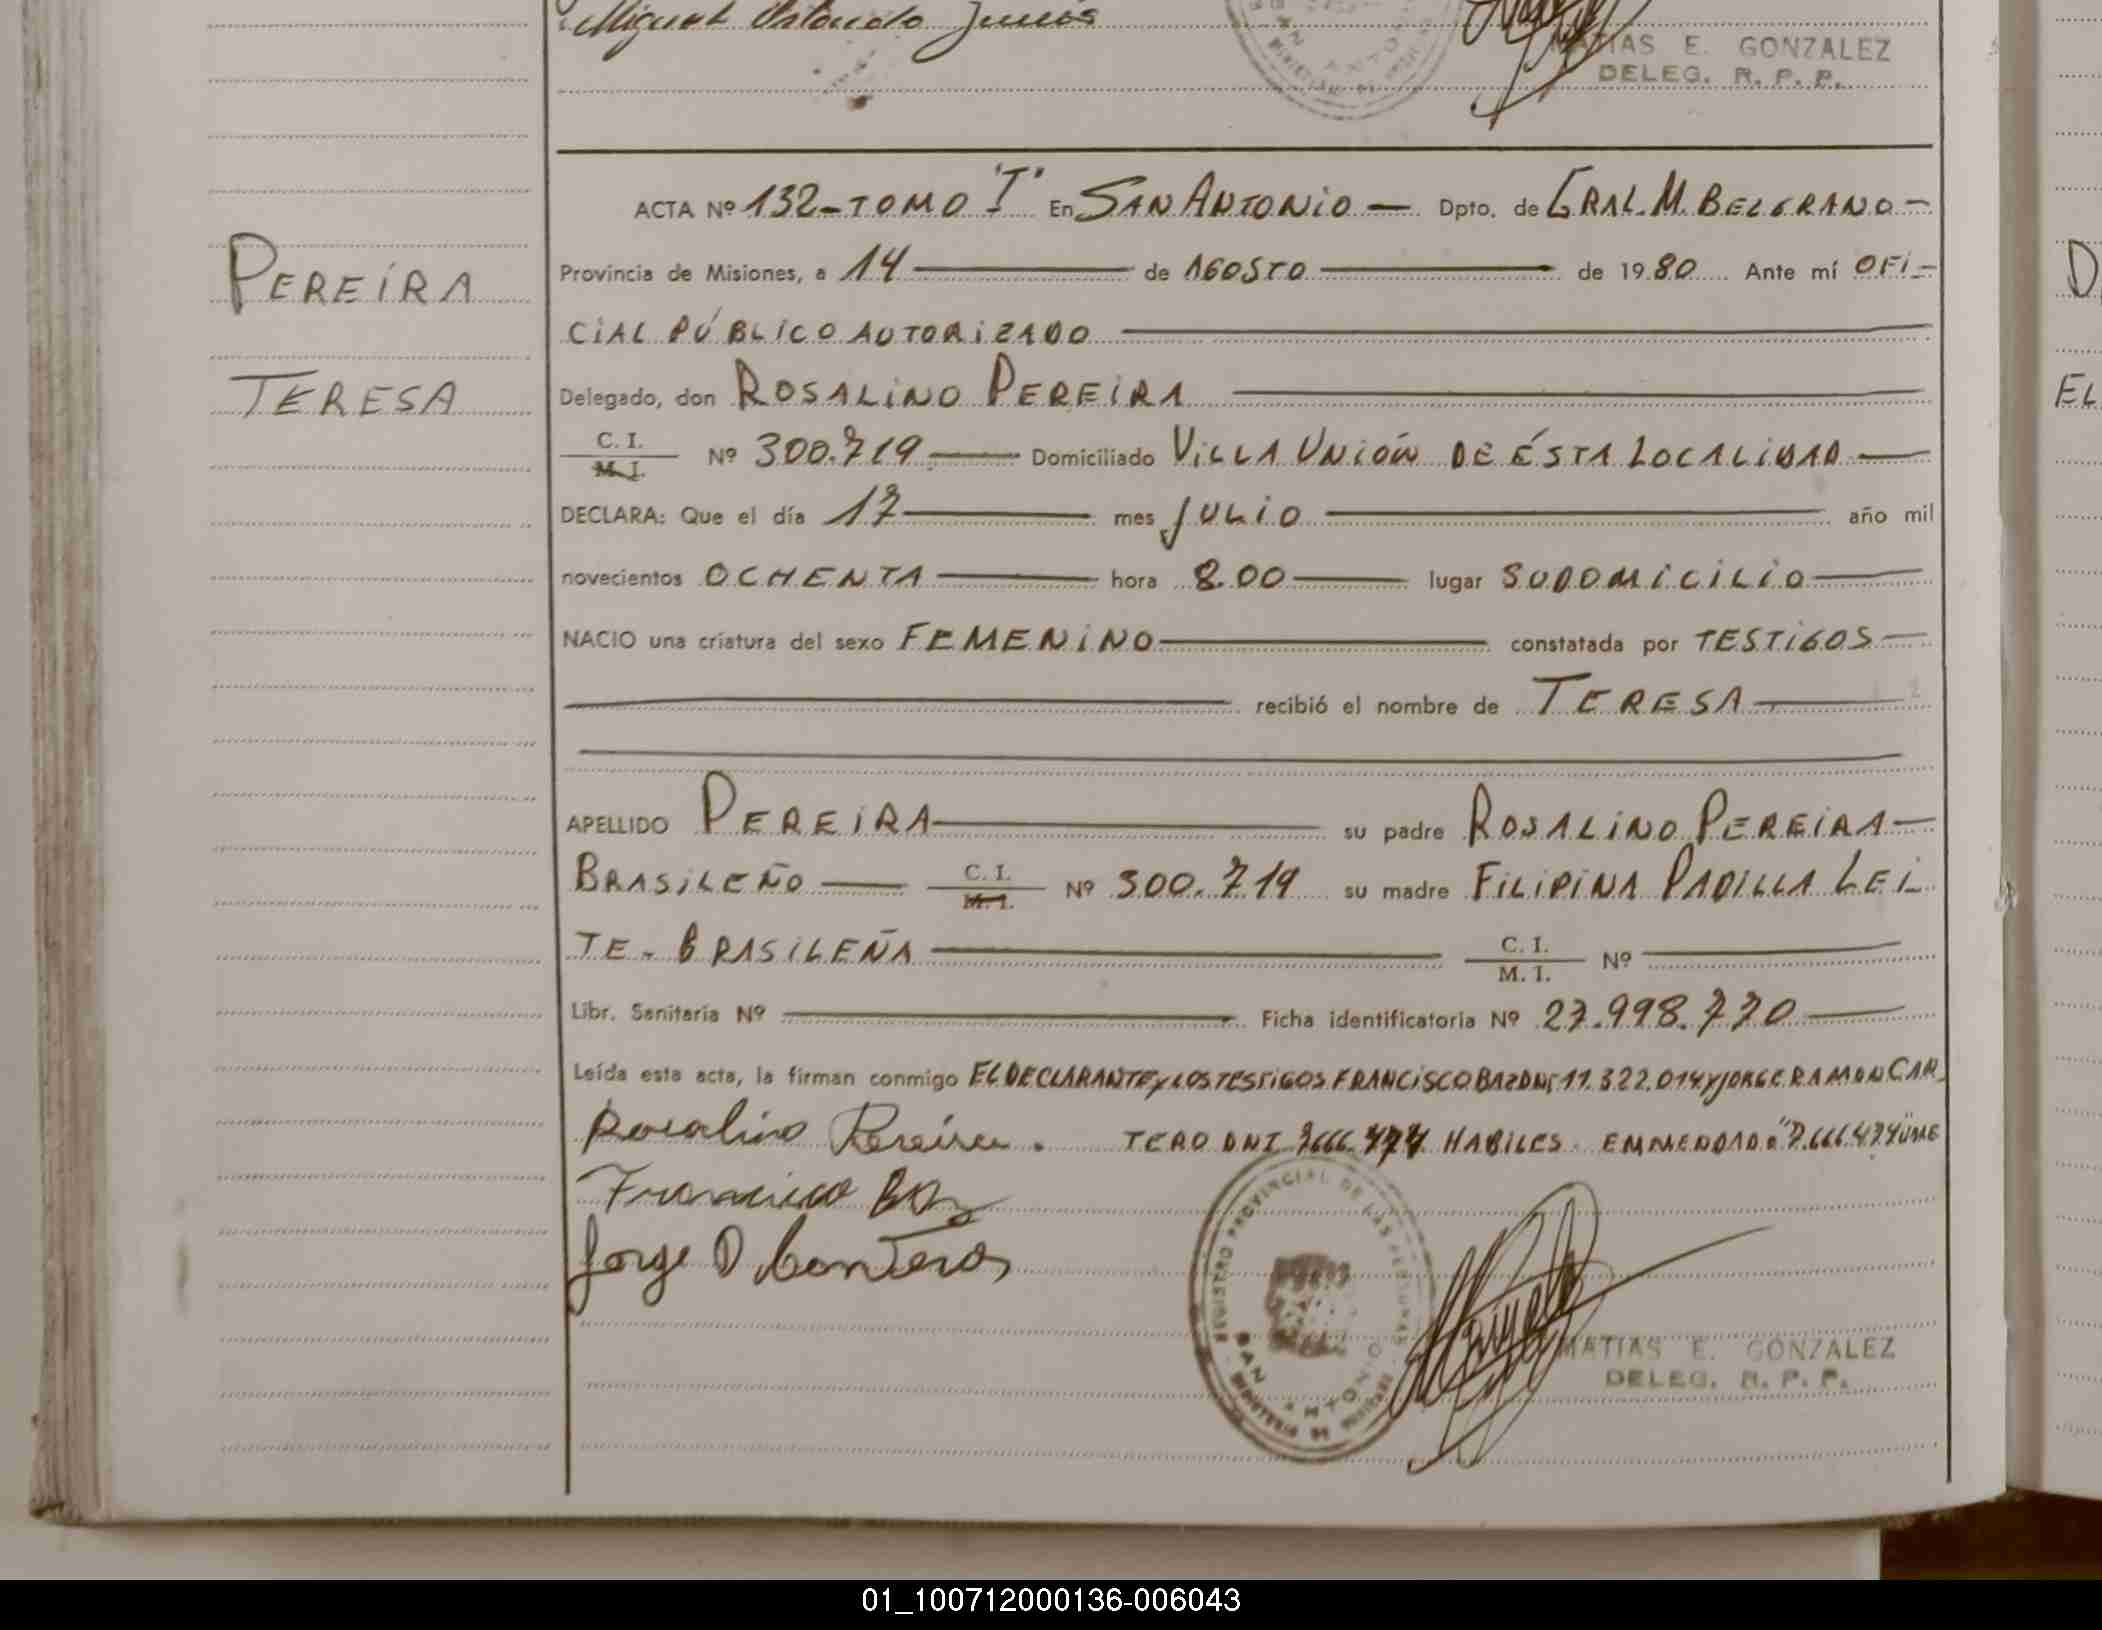 Miguel Orlando
MATIAS E. GONZALEZ
DELEG. R. P. P.
ACTA Nº 132-TOMO "I" En SAN ANTONIO — Dpto. de GRAL. M. BELGRANO -
PEREIRA
Provincia de Misiones, a 14 de AGOSTO de 1980 Ante mí OFI-
CIAL PÚBLICO AUTORIZADO
TERESA
Delegado, don ROSALINO PEREIRA
C. I.
M. I. Nº 300.719 Domiciliado VILLA UNIÓN DE ÉSTA LOCALIDAD
DECLARA: Que el día 17 mes JULIO año mil
novecientos OCHENTA hora 8.00 lugar SU DOMICILIO
NACIO una criatura del sexo FEMENINO constatada por TESTIGOS
recibió el nombre de TERESA
APELLIDO PEREIRA su padre ROSALINO PEREIRA
BRASILEÑO C. I.
M. I. Nº 300.719 su madre FILIPINA PADILLA LEI
TE - BRASILEÑA C. I.
M. I. Nº
Libr. Sanitaria Nº Ficha identificatoria Nº 27.998.770
Leída esta acta, la firman conmigo EL DECLARANTE y LOS TESTIGOS FRANCISCO BAZ DNI 11.322.014 y JORGE RAMON CAR
Rosalino Pereira. TERO DNI 7666.474 HABILES. EMMENDADO "7.666.474" VALE
Francisco Baz
Jorge
REGISTRO PROVINCIAL DE LAS PERSONAS
SAN ANTONIO
MATIAS E. GONZALEZ
DELEG. R. P. P.
D
EL
01_100712000136-006043